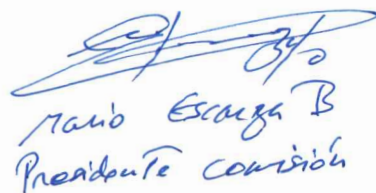 Mario Escanga B
Presidente comisión